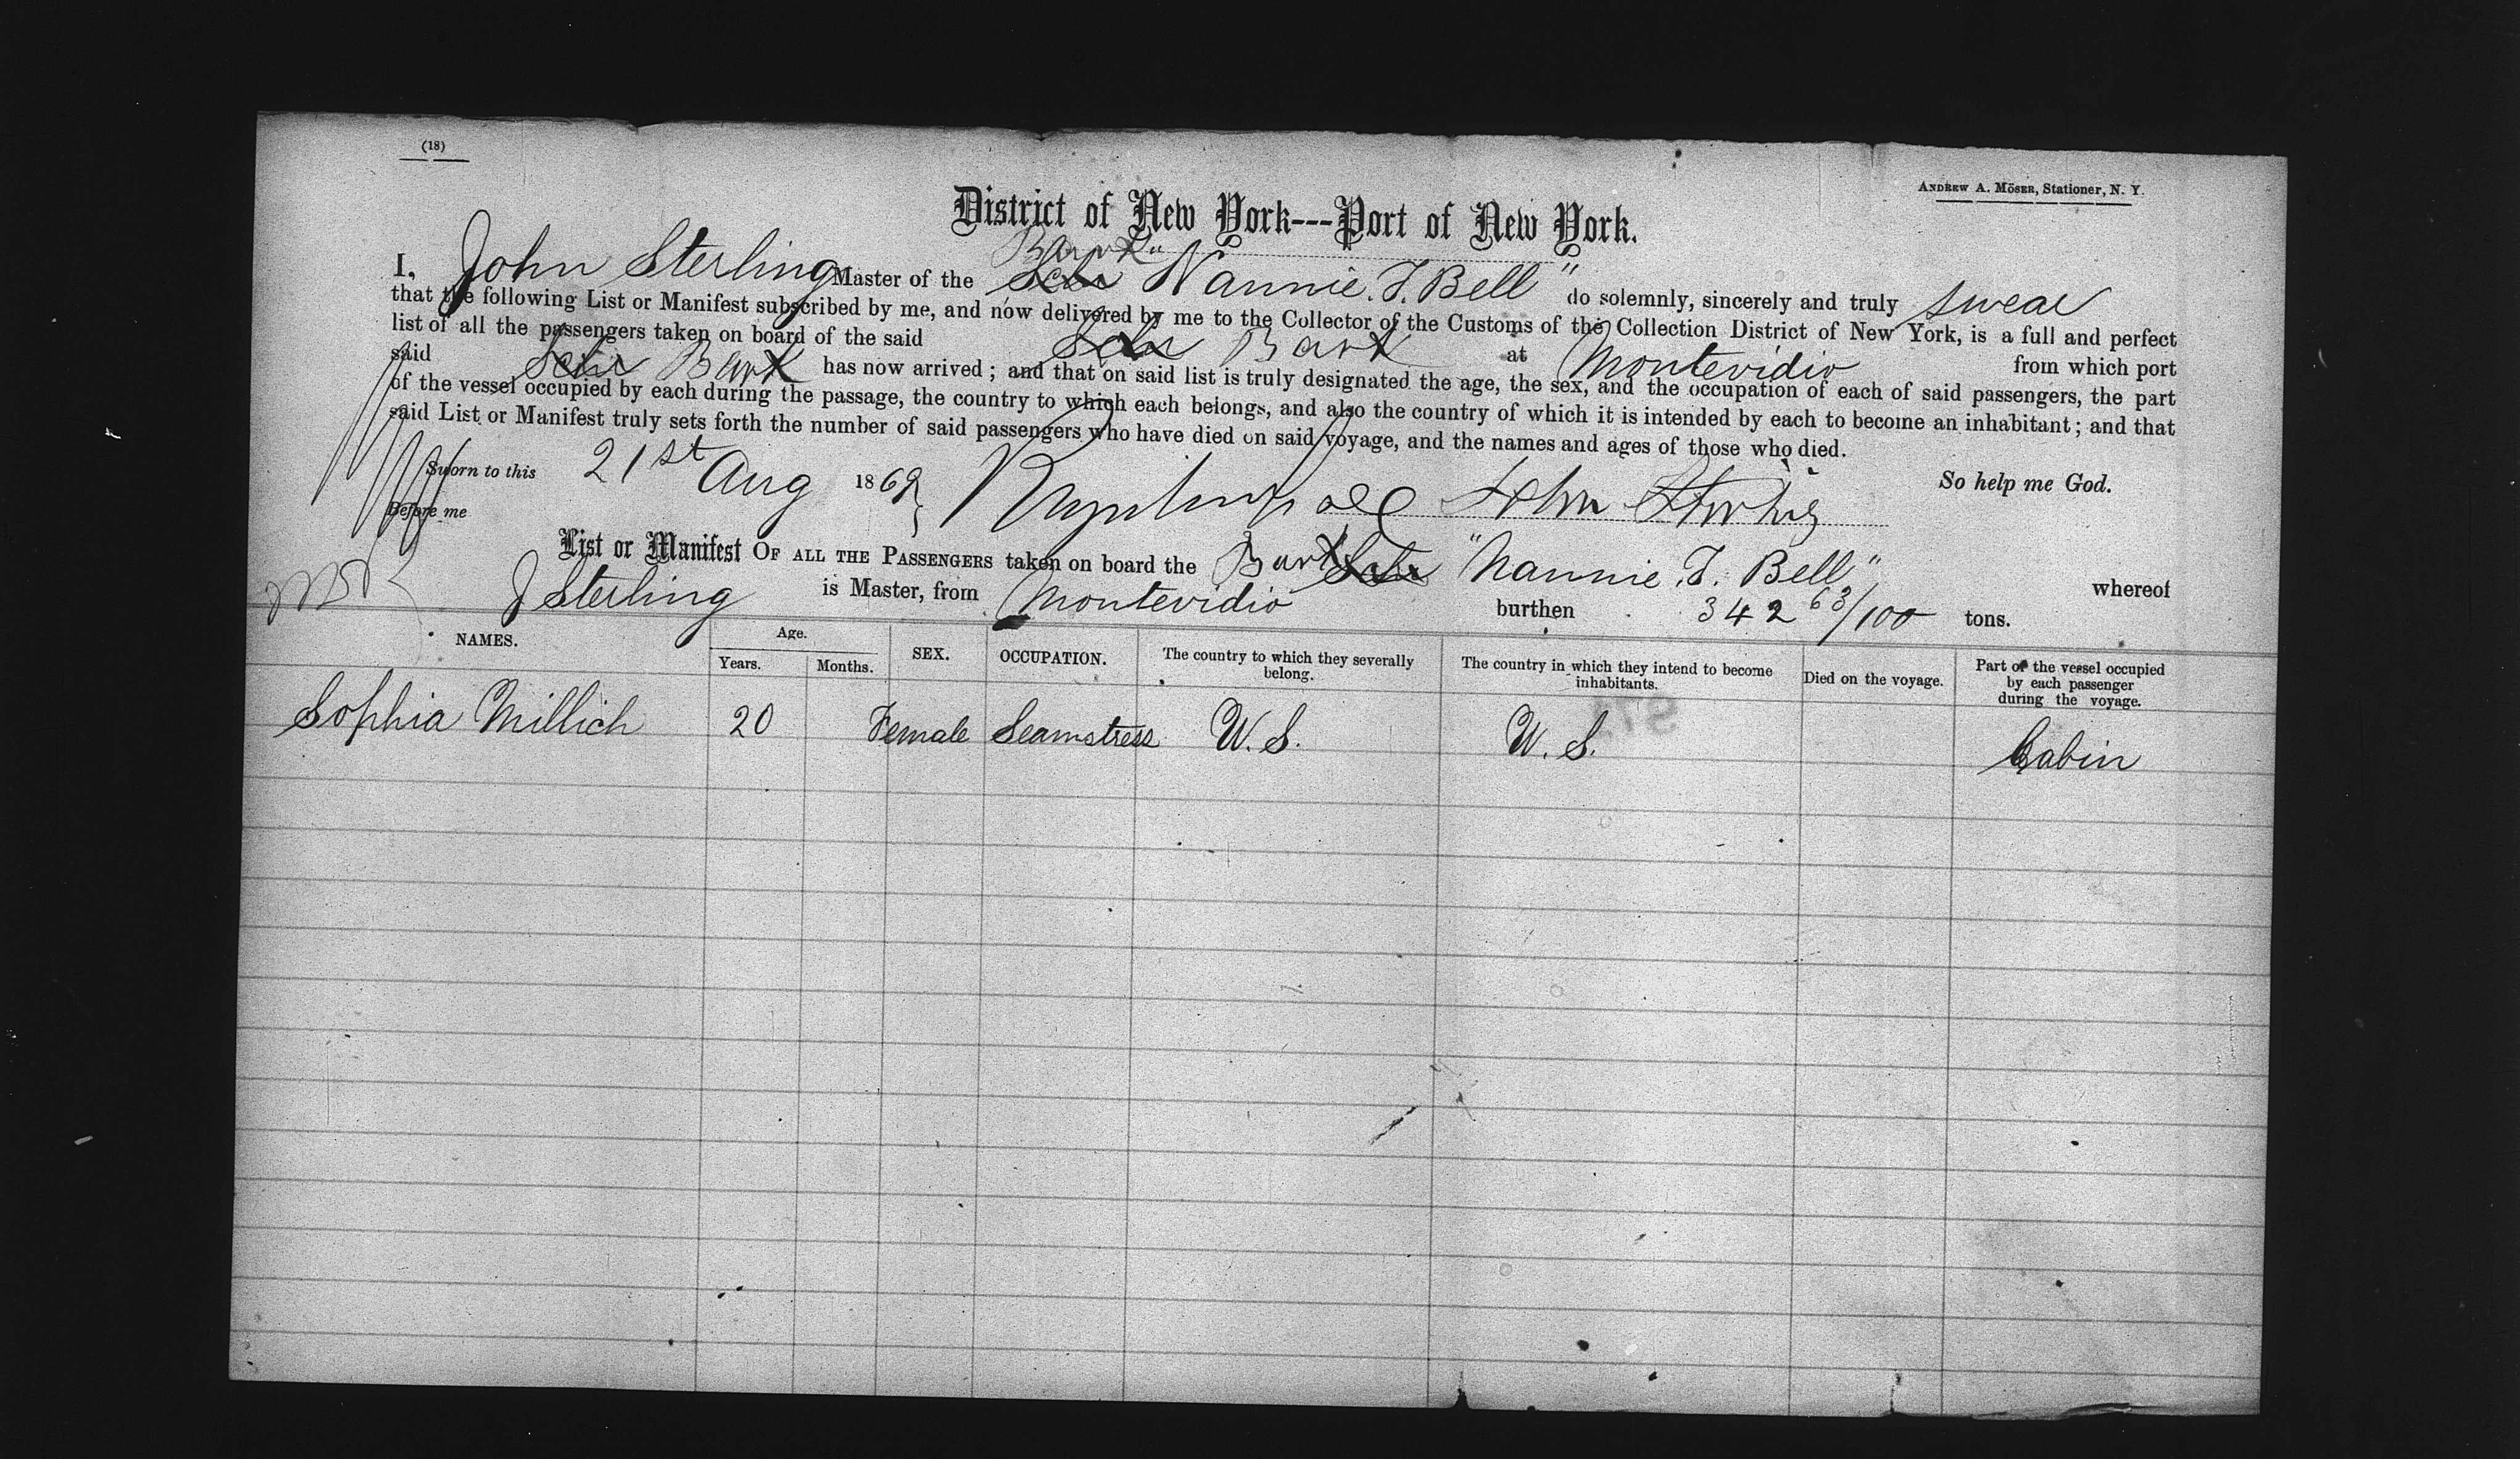 (18)
ANDREW A. MÖSER, Stationer, N. Y.
District of New York---Port of New York.
Bark
I, John Sterling Master of the Schr "Nannie. T. Bell" do solemnly, sincerely and truly swear
that the following List or Manifest subscribed by me, and now delivered by me to the Collector of the Customs of the Collection District of New York, is a full and perfect
list of all the passengers taken on board of the said Schr Bark at Montevidio from which port
said Schr Bark has now arrived; and that on said list is truly designated the age, the sex, and the occupation of each of said passengers, the part
of the vessel occupied by each during the passage, the country to which each belongs, and also the country of which it is intended by each to become an inhabitant; and that
said List or Manifest truly sets forth the number of said passengers who have died on said voyage, and the names and ages of those who died.
So help me God.
Sworn to this 21st Aug 1869 John Sterling
Before me
List or Manifest OF ALL THE PASSENGERS taken on board the Bark Schr "Nannie. T. Bell" whereof
J Sterling is Master, from Montevidio burthen 342 63/100 tons.
NAMES. Age. Years. Months. SEX. OCCUPATION. The country to which they severally belong. The country in which they intend to become inhabitants. Died on the voyage. Part of the vessel occupied by each passenger during the voyage.
Sophia Millich 20 Female Seamstress U. S. U. S. Cabin